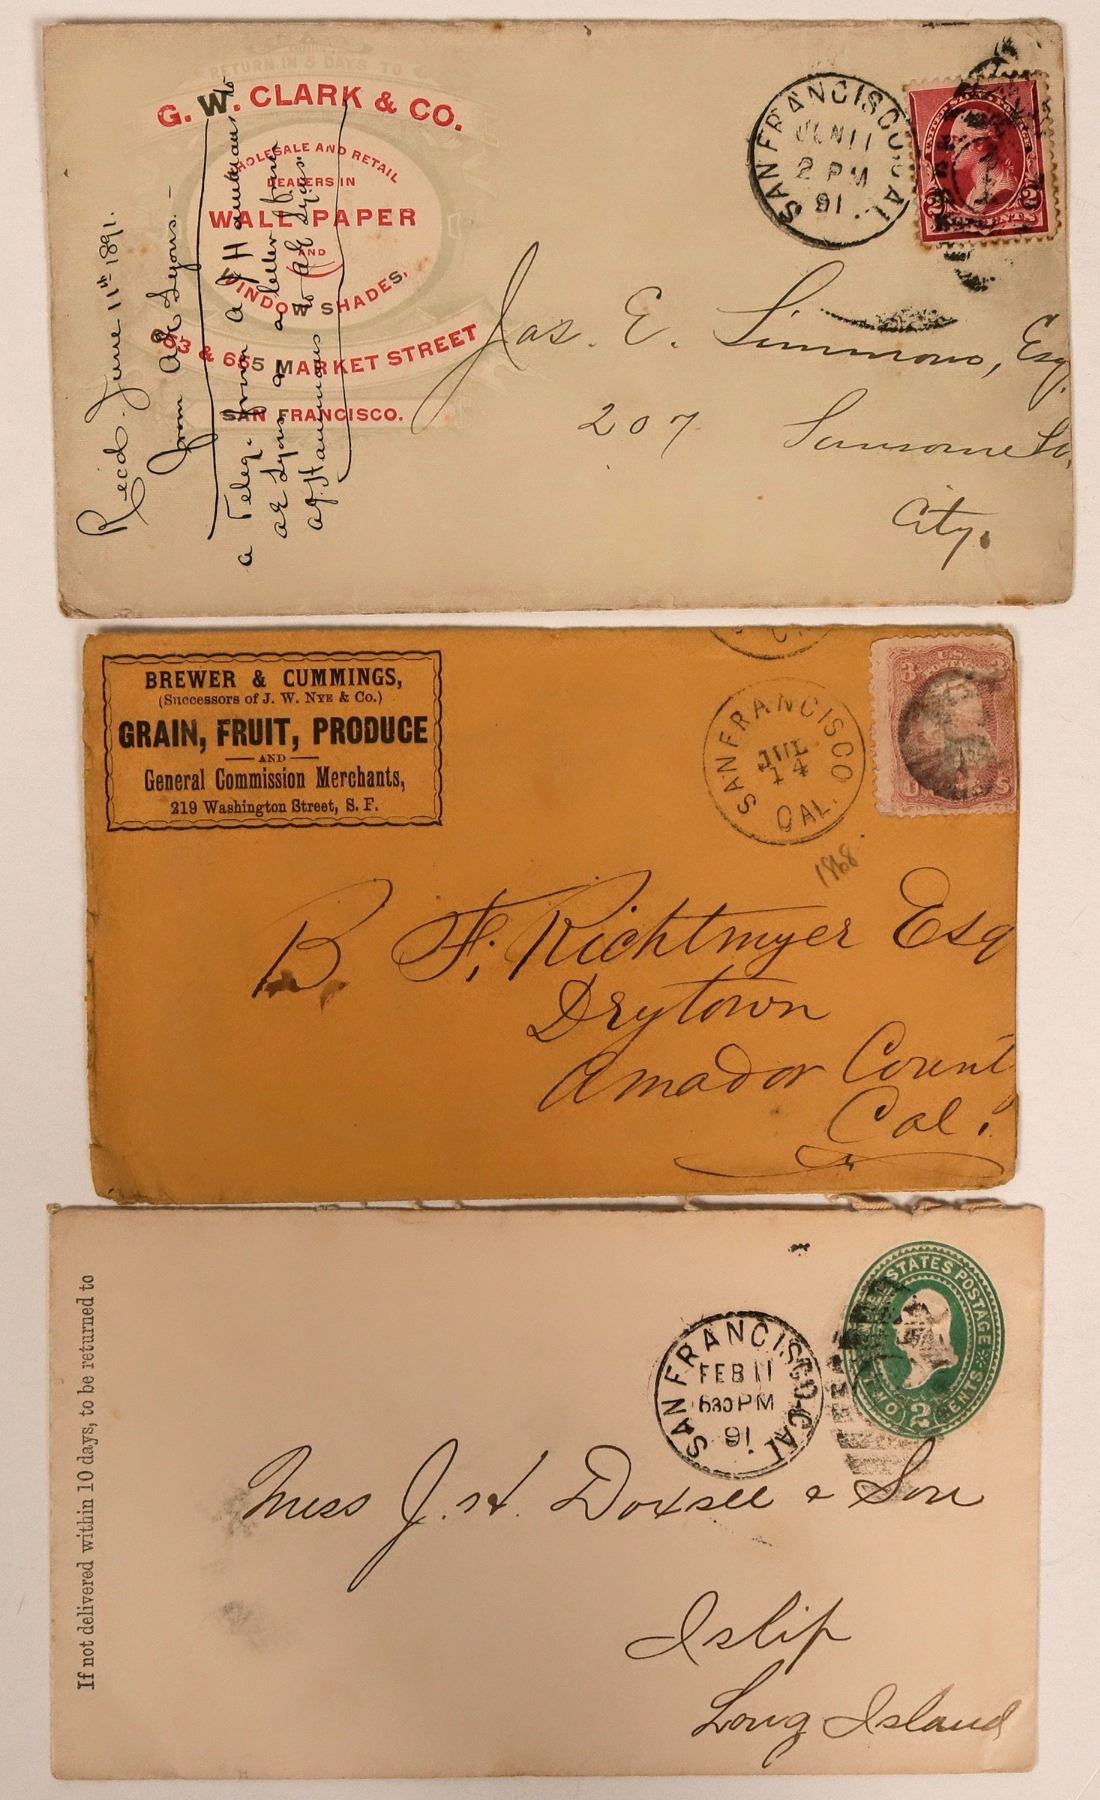 RETURN IN 5 DAYS TO
G. W. CLARK & CO.
WHOLESALE AND RETAIL
DEALERS IN
WALL PAPER
AND
WINDOW SHADES,
653 & 655 MARKET STREET
SAN FRANCISCO.
Recd. June 11th 1891.
from A E Lyons. —
a Telegr. from A J Hammans to
A E Lyons & a letter from
A J Hammans to A E Lyons
SAN FRANCISCO, CAL.
JUN 11
2 PM
91
2 2
CENTS
Jas. E. Simmons, Esq.
207 Sansome St.
City.
BREWER & CUMMINGS,
(Successors of J. W. NYE & Co.)
GRAIN, FRUIT, PRODUCE
AND
General Commission Merchants,
219 Washington Street, S. F.
SAN FRANCISCO
JUL
14
CAL.
1868
3 U.S. 3
POSTAGE
B. F. Richtmyer Esq
Drytown
Amador Count
Cal.
If not delivered within 10 days, to be returned to
SAN FRANCISCO, CAL.
FEB 11
630 PM
91
UNITED STATES POSTAGE
TWO 2 CENTS
Mess J. H. Doxsee & Son
Islip
Long Island